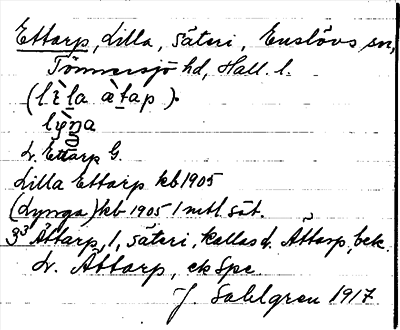 Ettarp, Lilla, säteri, Enslövs sn,
Tönnersjö hd, Hall. l.
(lìla ætap).
lyŋa
L. Ettarp G.
Lilla Ettarp kb 1905
(Lynga) kb 1905 1 mtl sät.
33 Ättarp, l, säteri, kallas d. Ättarp, bek.
Lr. Attarp, ek Spe.
J Sahlgren 1917.